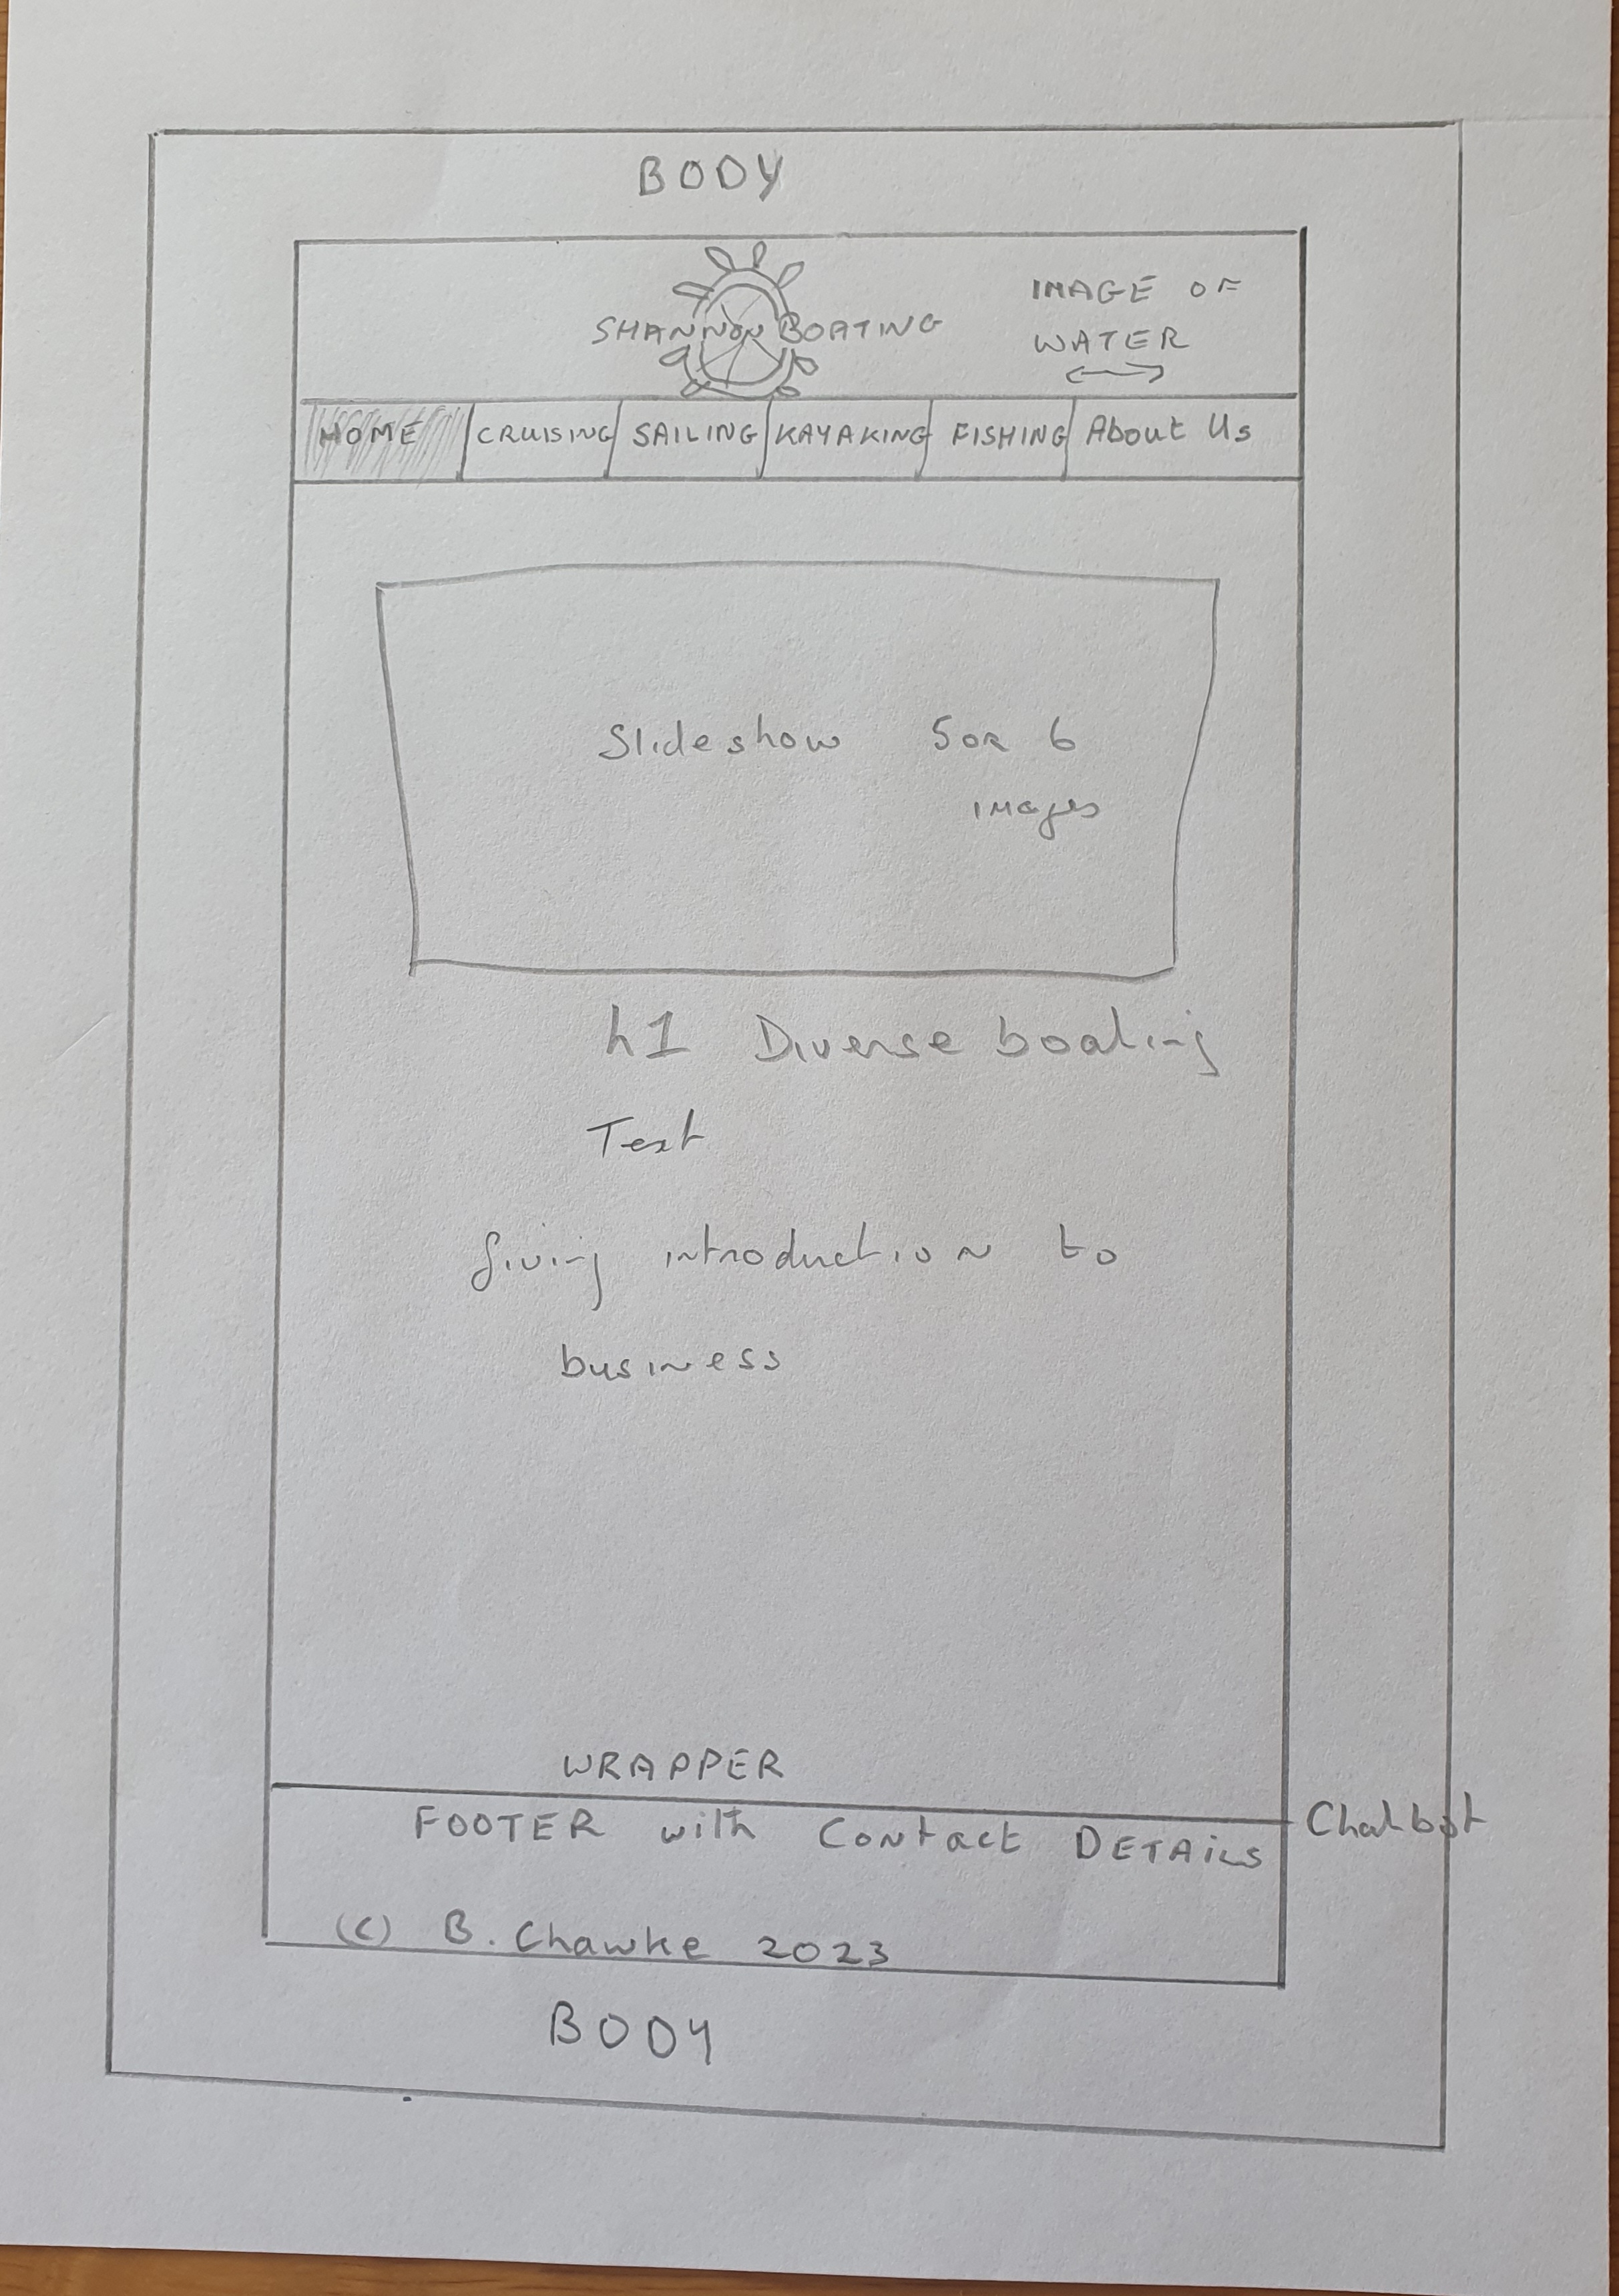 BODY
SHANNON BOATING
IMAGE OF
WATER
HOME CRUISING SAILING KAYAKING FISHING About Us
Slideshow 5 OR 6
images
h1 Diverse boating
Text
giving introduction to
business
WRAPPER
FOOTER with Contact DETAILS
Chatbot
(C) B. Chawke 2023
BODY